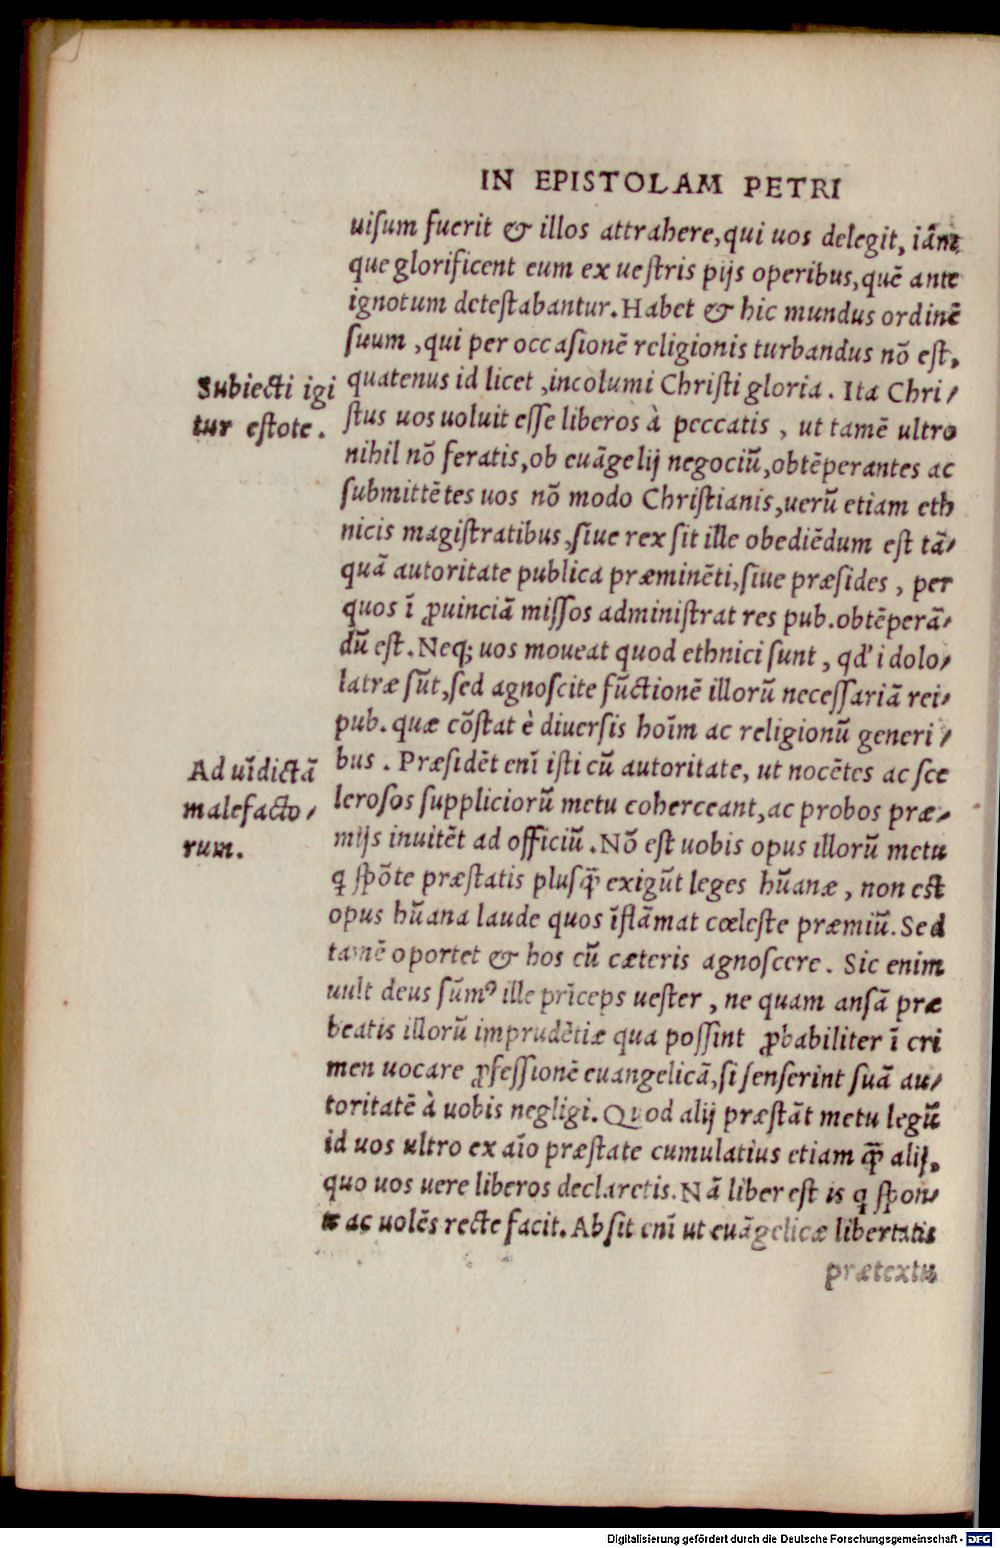 IN EPISTOLAM PETRI
uiſum fuerit & illos attrahere, qui uos delegit, iãm
que glorificent eum ex ueſtris pijs operibus, quẽ ante
ignotum deteſtabantur. Habet & hic mundus ordinẽ
ſuum, qui per occaſionẽ religionis turbandus nõ eſt,
Subiecti igi
tur eſtote.
quatenus id licet, incolumi Chriſti gloria. Ita Chri/
ſtus uos uoluit eſſe liberos à peccatis, ut tamẽ ultro
nihil nõ feratis, ob euãgelij negociũ, obtẽperantes ac
ſubmittẽtes uos nõ modo Chriſtianis, uerũ etiam eth
nicis magiſtratibus, ſiue rex ſit ille obediẽdum eſt tã/
quã autoritate publica præminẽti, ſiue præſides, per
quos ĩ ꝓuinciã miſſos adminiſtrat res pub. obtẽperã/
dũ eſt. Neq; uos moueat quod ethnici ſunt, qd' idolo/
latræ ſũt, ſed agnoſcite fũctionẽ illorũ neceſſariã rei/
pub. quæ cõſtat è diuerſis hoĩm ac religionũ generi/
Ad uĩdictã
malefacto/
rum.
bus. Præſidẽt enĩ iſti cũ autoritate, ut nocẽtes ac ſce
leroſos ſuppliciorũ metu coherceant, ac probos præ/
mijs inuitẽt ad officiũ. Nõ eſt uobis opus illorũ metu
q ſpõte præſtatis pluſq̃ exigũt leges hũanæ, non eſt
opus hũana laude quos ĩflãmat cœleſte præmiũ. Sed
tamẽ oportet & hos cũ cæteris agnoſcere. Sic enim
uult deus ſũmꝰ ille prĩceps ueſter, ne quam anſã præ
beatis illorũ imprudẽtiæ qua poſſint ꝓbabiliter ĩ cri
men uocare ꝓfeſſionẽ euangelicã, ſi ſenſerint ſuã au/
toritatẽ à uobis negligi. Quod alij præſtãt metu legũ
id uos ultro ex aĩo præſtate cumulatius etiam q̃ alij,
quo uos uere liberos declaretis. Nã liber eſt is q ſpon/
te ac uolẽs recte facit. Abſit enĩ ut euãgelicæ libertatis
prætextu
Digitalisierung gefördert durch die Deutsche Forschungsgemeinschaft - DFG